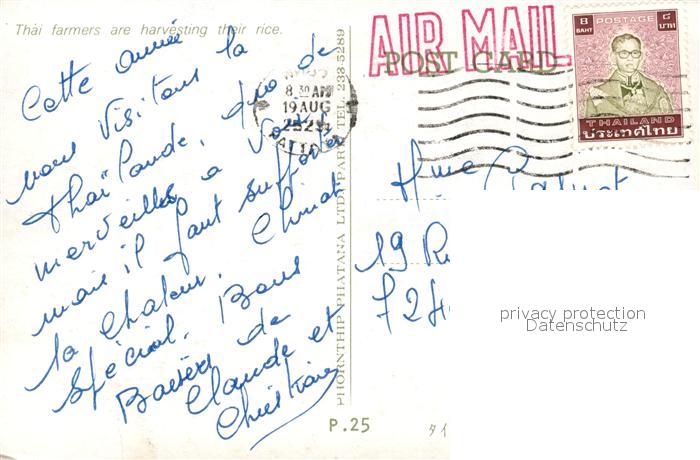 Thai farmers are harvesting their rice.
Cette année
nous visitons la
Thaïlande, que de
merveilles a voir,
mais il faut supporter
la chaleur. Climat
spécial. Bons
Baisers de
Claude et
Christiane
PHORNTHIP PHATANA LTD., PART. TEL. 233-5289
P.25
AIR MAIL
POST CARD
8 30 AM
19 AUG
2523
8
BAHT
POSTAGE
๘
บาท
THAILAND
ประเทศไทย
Mme
19 R
privacy protection
Datenschutz